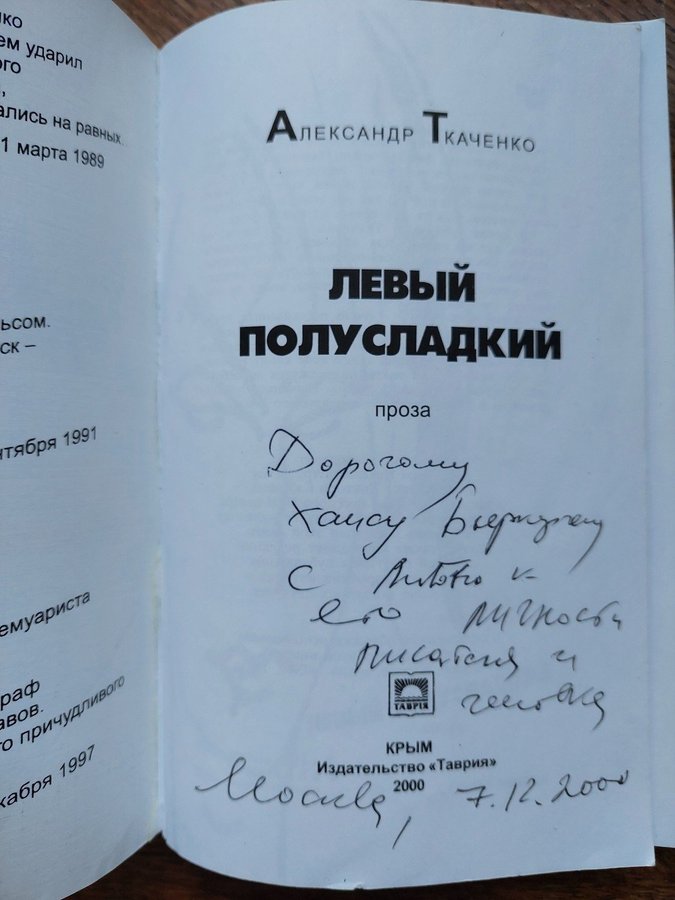 нко
ем ударил
ого
ались на равных.
1 марта 1989
ьсом.
ск –
нтября 1991
емуариста
раф
авов.
го причудливого
кабря 1997
Александр Ткаченко
ЛЕВЫЙ
ПОЛУСЛАДКИЙ
проза
Дорогому
Хансу
с любовью к
его личности
писателя и
человека
ТАВРІЯ
КРЫМ
Издательство «Таврия»
2000
Москва, 7.12.2000